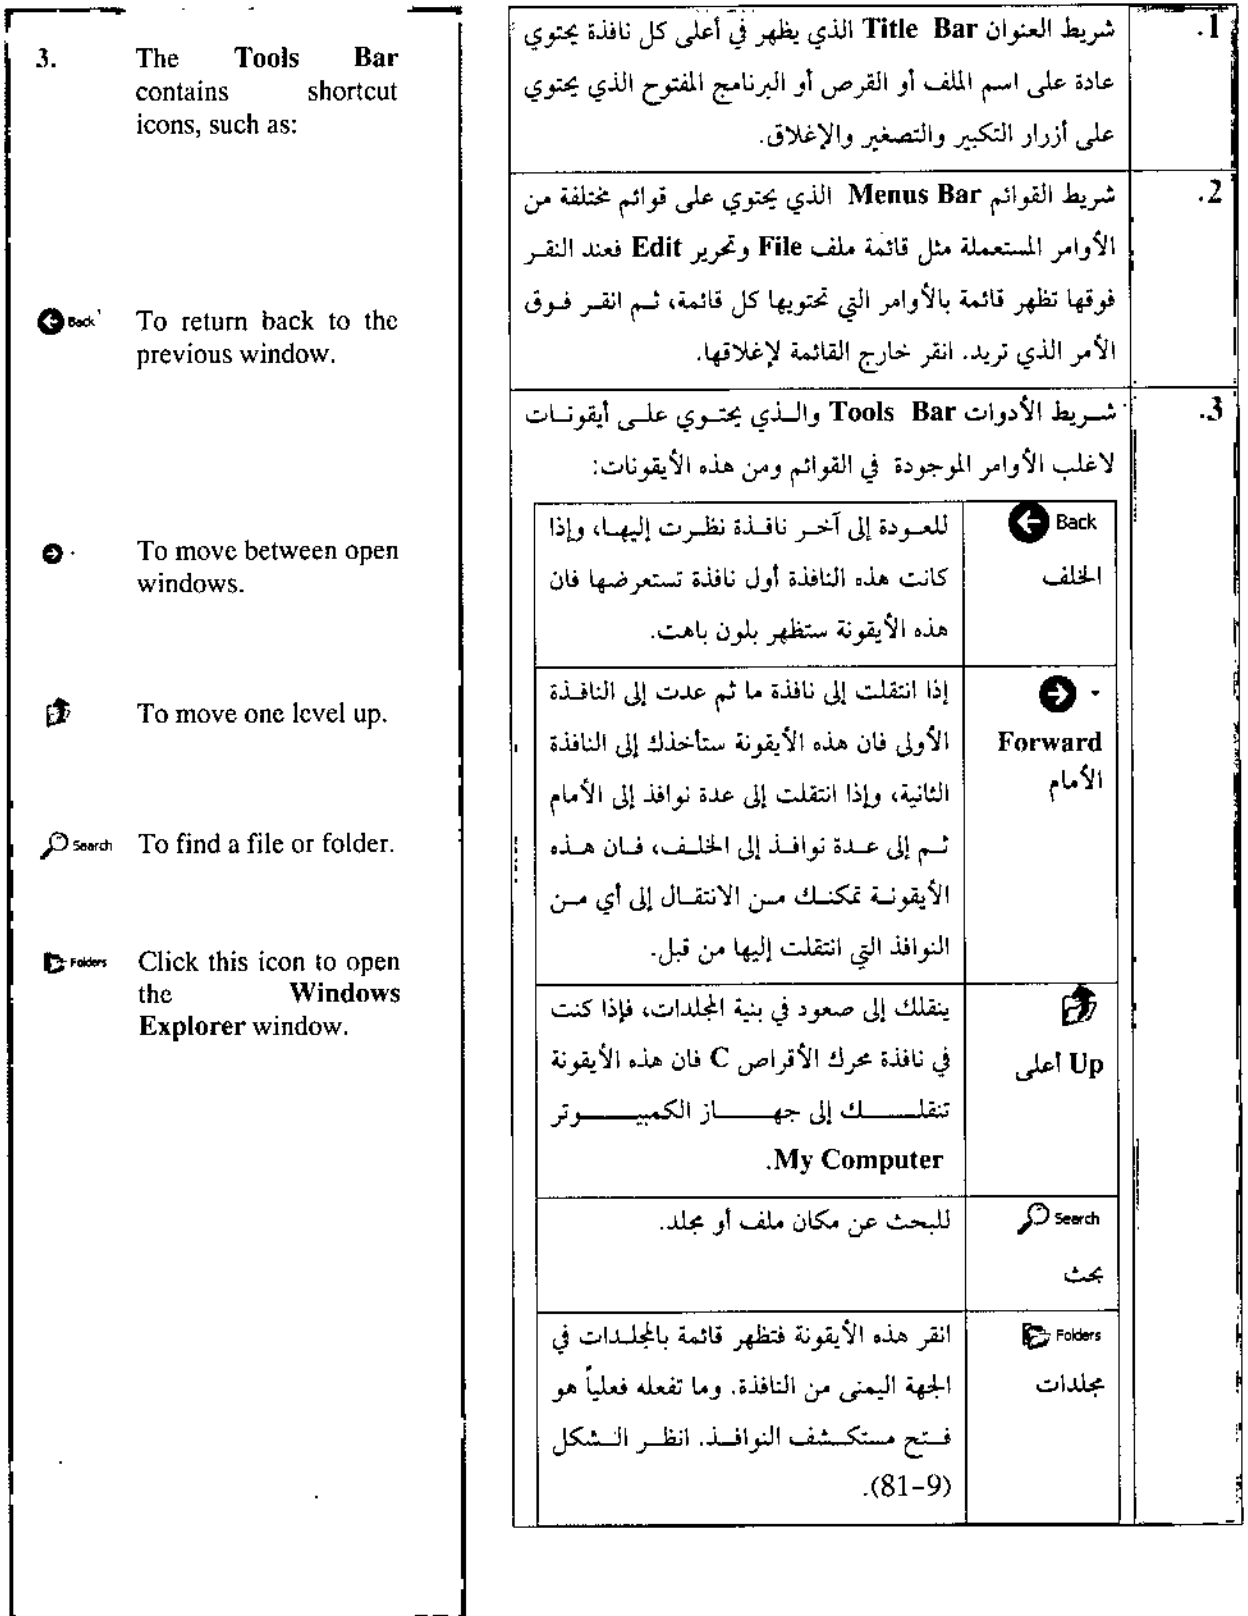 3. The Tools Bar
contains shortcut
icons, such as:
Back To return back to the
previous window.
To move between open
windows.
To move one level up.
Search To find a file or folder.
Folders Click this icon to open
the Windows
Explorer window.
.1 شريط العنوان Title Bar الذي يظهر في أعلى كل نافذة يحتوي
عادة على اسم الملف أو القرص أو البرنامج المفتوح الذي يحتوي
على أزرار التكبير والتصغير والإغلاق.
.2 شريط القوائم Menus Bar الذي يحتوي على قوائم مختلفة من
الأوامر المستعملة مثل قائمة ملف File وتحرير Edit فعند النقر
فوقها تظهر قائمة بالأوامر التي تحتويها كل قائمة، ثم انقر فوق
الأمر الذي تريد. انقر خارج القائمة لإغلاقها.
.3 شريط الأدوات Tools Bar والذي يحتوي على أيقونات
لاغلب الأوامر الموجودة في القوائم ومن هذه الأيقونات:
Back
الخلف
للعودة إلى آخر نافذة نظرت إليها، وإذا
كانت هذه النافذة أول نافذة تستعرضها فان
هذه الأيقونة ستظهر بلون باهت.
Forward
الأمام
إذا انتقلت إلى نافذة ما ثم عدت إلى النافذة
الأولى فان هذه الأيقونة ستأخذك إلى النافذة
الثانية، وإذا انتقلت إلى عدة نوافذ إلى الأمام
ثم إلى عدة نوافذ إلى الخلف، فان هذه
الأيقونة تمكنك من الانتقال إلى أي من
النوافذ التي انتقلت إليها من قبل.
Up أعلى
ينقلك إلى صعود في بنية المجلدات، فإذا كنت
في نافذة محرك الأقراص C فان هذه الأيقونة
تنقلك إلى جهاز الكمبيوتر
My Computer.
Search
بحث
للبحث عن مكان ملف أو مجلد.
Folders
مجلدات
انقر هذه الأيقونة فتظهر قائمة بالمجلدات في
الجهة اليمنى من النافذة. وما تفعله فعلياً هو
فتح مستكشف النوافذ. انظر الشكل
(9-81).